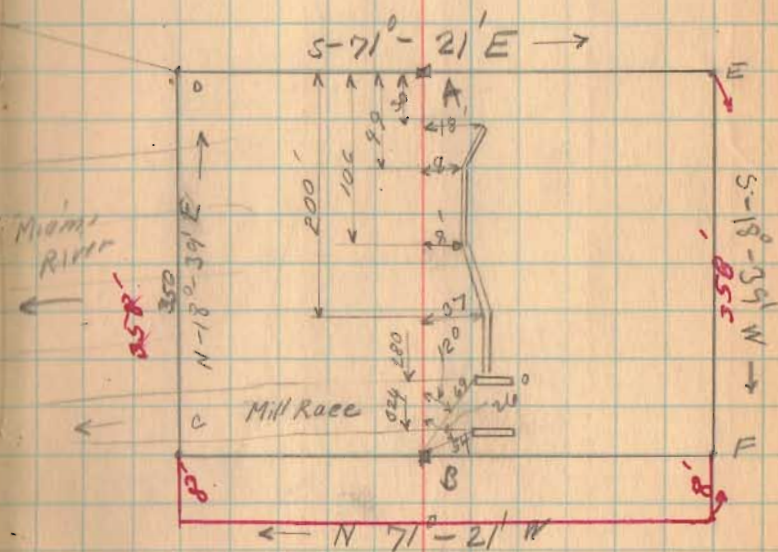 S-71°-21'E →
D
A
E
30
99
106
200'
18
9
8'
27
N-18°-39'E →
350
358'
Miami
River
←
S-18°-39'W →
358'
280
120
69
0
26
024
54
Mill Race
←
C
B
F
8'
8'
← N 71°-21' W